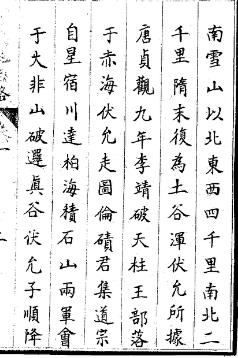 南雪山以北東西四千里南北二
千里隋末復為土谷渾伏允所據
唐貞觀九年李靖破天柱王部落
于赤海伏允走圖倫磧君集道宗
自星宿川達柏海積石山兩軍會
于大非山破邏真谷伏允子順降